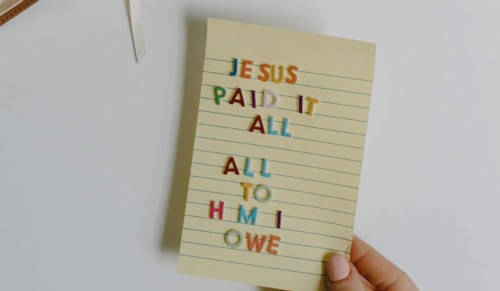 JESUS
PAID IT
ALL
ALL
TO
HMI
OWE